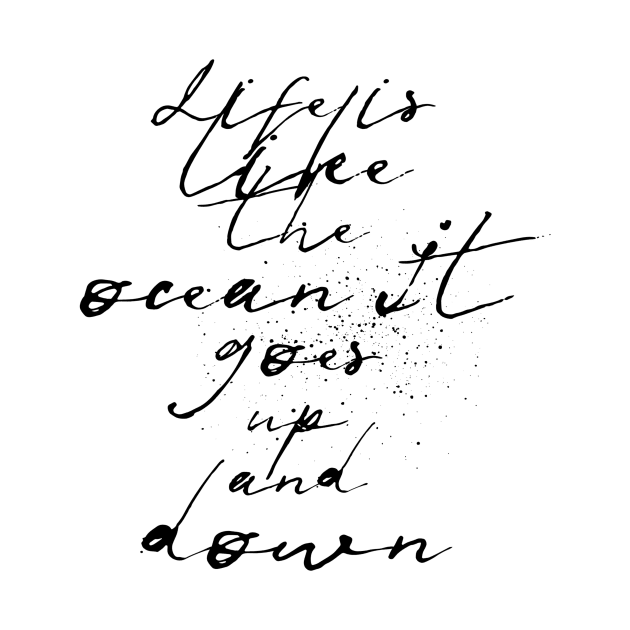 Life is
like
the
ocean It
goes
up
and
down